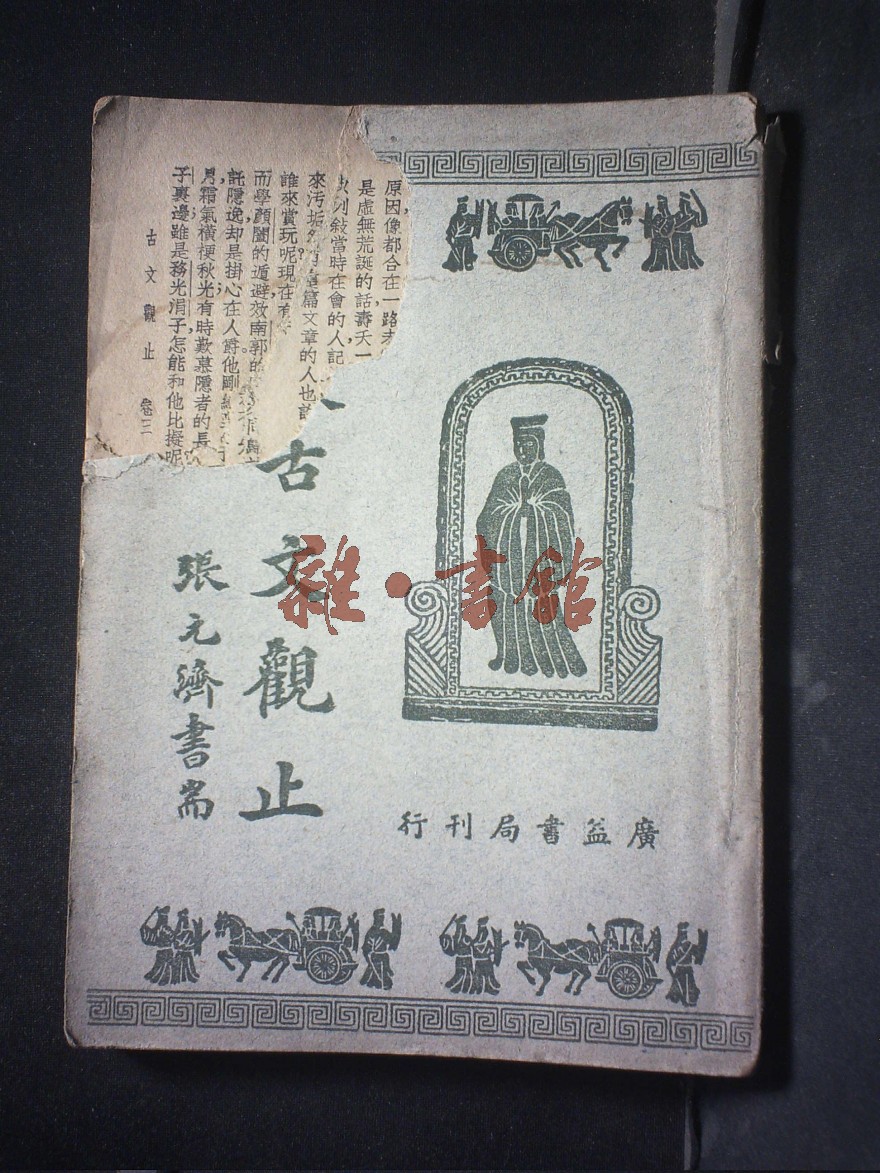 原因像都合在一路
是虛無荒誕的話壽夭一
列敍當時在會的人記
來汚垢 篇文章的人也
誰來賞玩呢現在有
而學顏闔的遁避效南郭的
託隱逸却是掛心在人爵他剛
月霜氣橫梗秋光有時歎慕隱者的長
子裏邊雖是務光涓子怎能和他比擬呢
古文觀止 卷三
廣益書局刊行
古文觀止
張元濟書耑
雜·書館